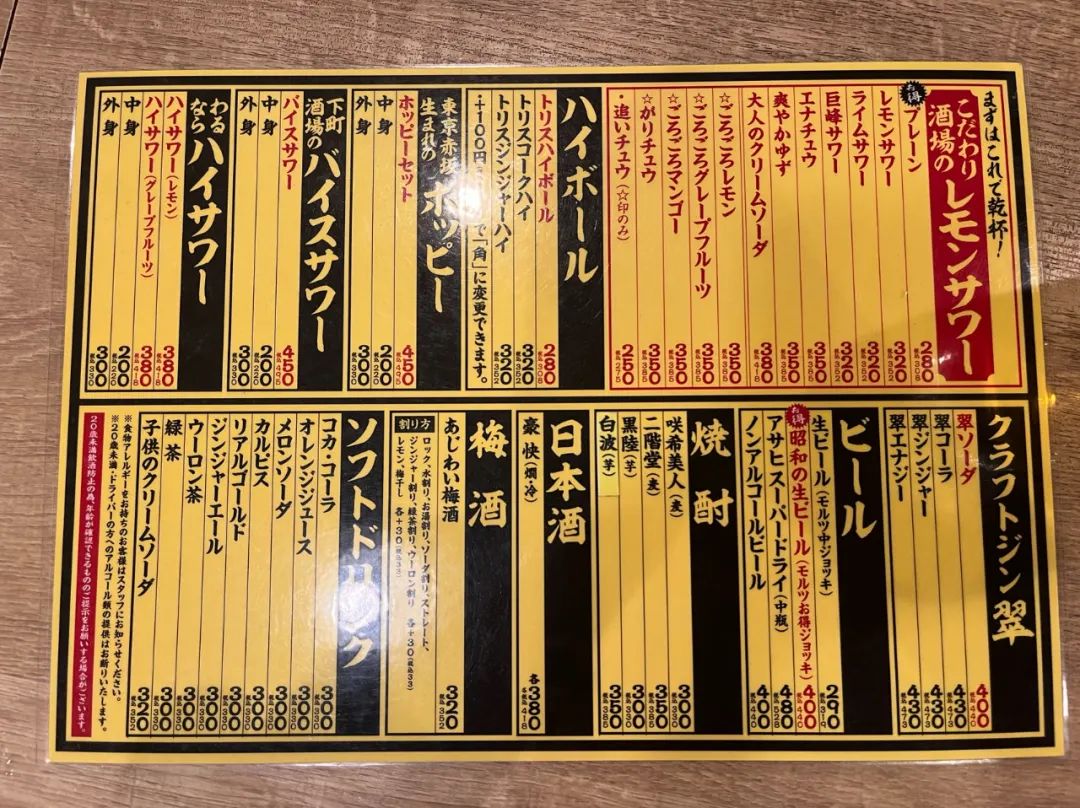 まずはこれで乾杯!
こだわり酒場のレモンサワー
お得 プレーン 280 税込308
レモンサワー 320 税込352
ライムサワー 320 税込352
巨峰サワー 320 税込352
エナチュウ 350 税込385
爽やかゆず 350 税込385
大人のクリームソーダ 380 税込418
☆ごろごろレモン 350 税込385
☆ごろごろグレープフルーツ 350 税込385
☆ごろごろマンゴー 350 税込385
☆がりチュウ 350 税込385
・追いチュウ(☆印のみ) 250 税込275
ハイボール
トリスハイボール 280 税込308
トリスコークハイ 320 税込352
トリスジンジャーハイ 320 税込352
・+100円 で「角」に変更できます。
東京赤坂生まれの ホッピー
ホッピーセット 450 税込495
中身 200 税込220
外身 300 税込330
下町酒場の バイスサワー
バイスサワー 450 税込495
中身 200 税込220
外身 300 税込330
わるなら ハイサワー
ハイサワー(レモン) 380 税込418
ハイサワー(グレープフルーツ) 380 税込418
中身 200 税込220
外身 300 税込330
クラフトジン翠
翠ソーダ 400 税込440
翠コーラ 430 税込473
翠ジンジャー 430 税込473
翠エナジー 430 税込473
ビール
生ビール(モルツ中ジョッキ) 290 税込319
お得 昭和の生ビール(モルツお得ジョッキ) 400 税込440
アサヒスーパードライ(中瓶) 480 税込528
ノンアルコールビール 400 税込440
焼酎
咲希美人(麦) 300 税込330
二階堂(麦) 350 税込385
黒陸(芋) 300 税込330
白波(芋) 350 税込385
日本酒
豪快(燗・冷) 各380 各税込418
梅酒
あじわい梅酒 320 税込352
割り方
ロック、水割り、お湯割り、ソーダ割り、ストレート、
ジンジャー割り、緑茶割り、ウーロン割り 各+30(税込33)
レモン、梅干し 各+30(税込33)
ソフトドリンク
コカ・コーラ 300 税込330
オレンジジュース 300 税込330
メロンソーダ 300 税込330
カルピス 300 税込330
リアルゴールド 300 税込330
ジンジャーエール 300 税込330
ウーロン茶 300 税込330
緑茶 300 税込330
子供のクリームソーダ 320 税込352
※食物アレルギーをお持ちのお客様はスタッフにお知らせください。
※20歳未満・ドライバーの方へのアルコール類の提供はお断りいたします。
20歳未満飲酒防止の為、年齢が確認できるもののご提示をお願いする場合がございます。